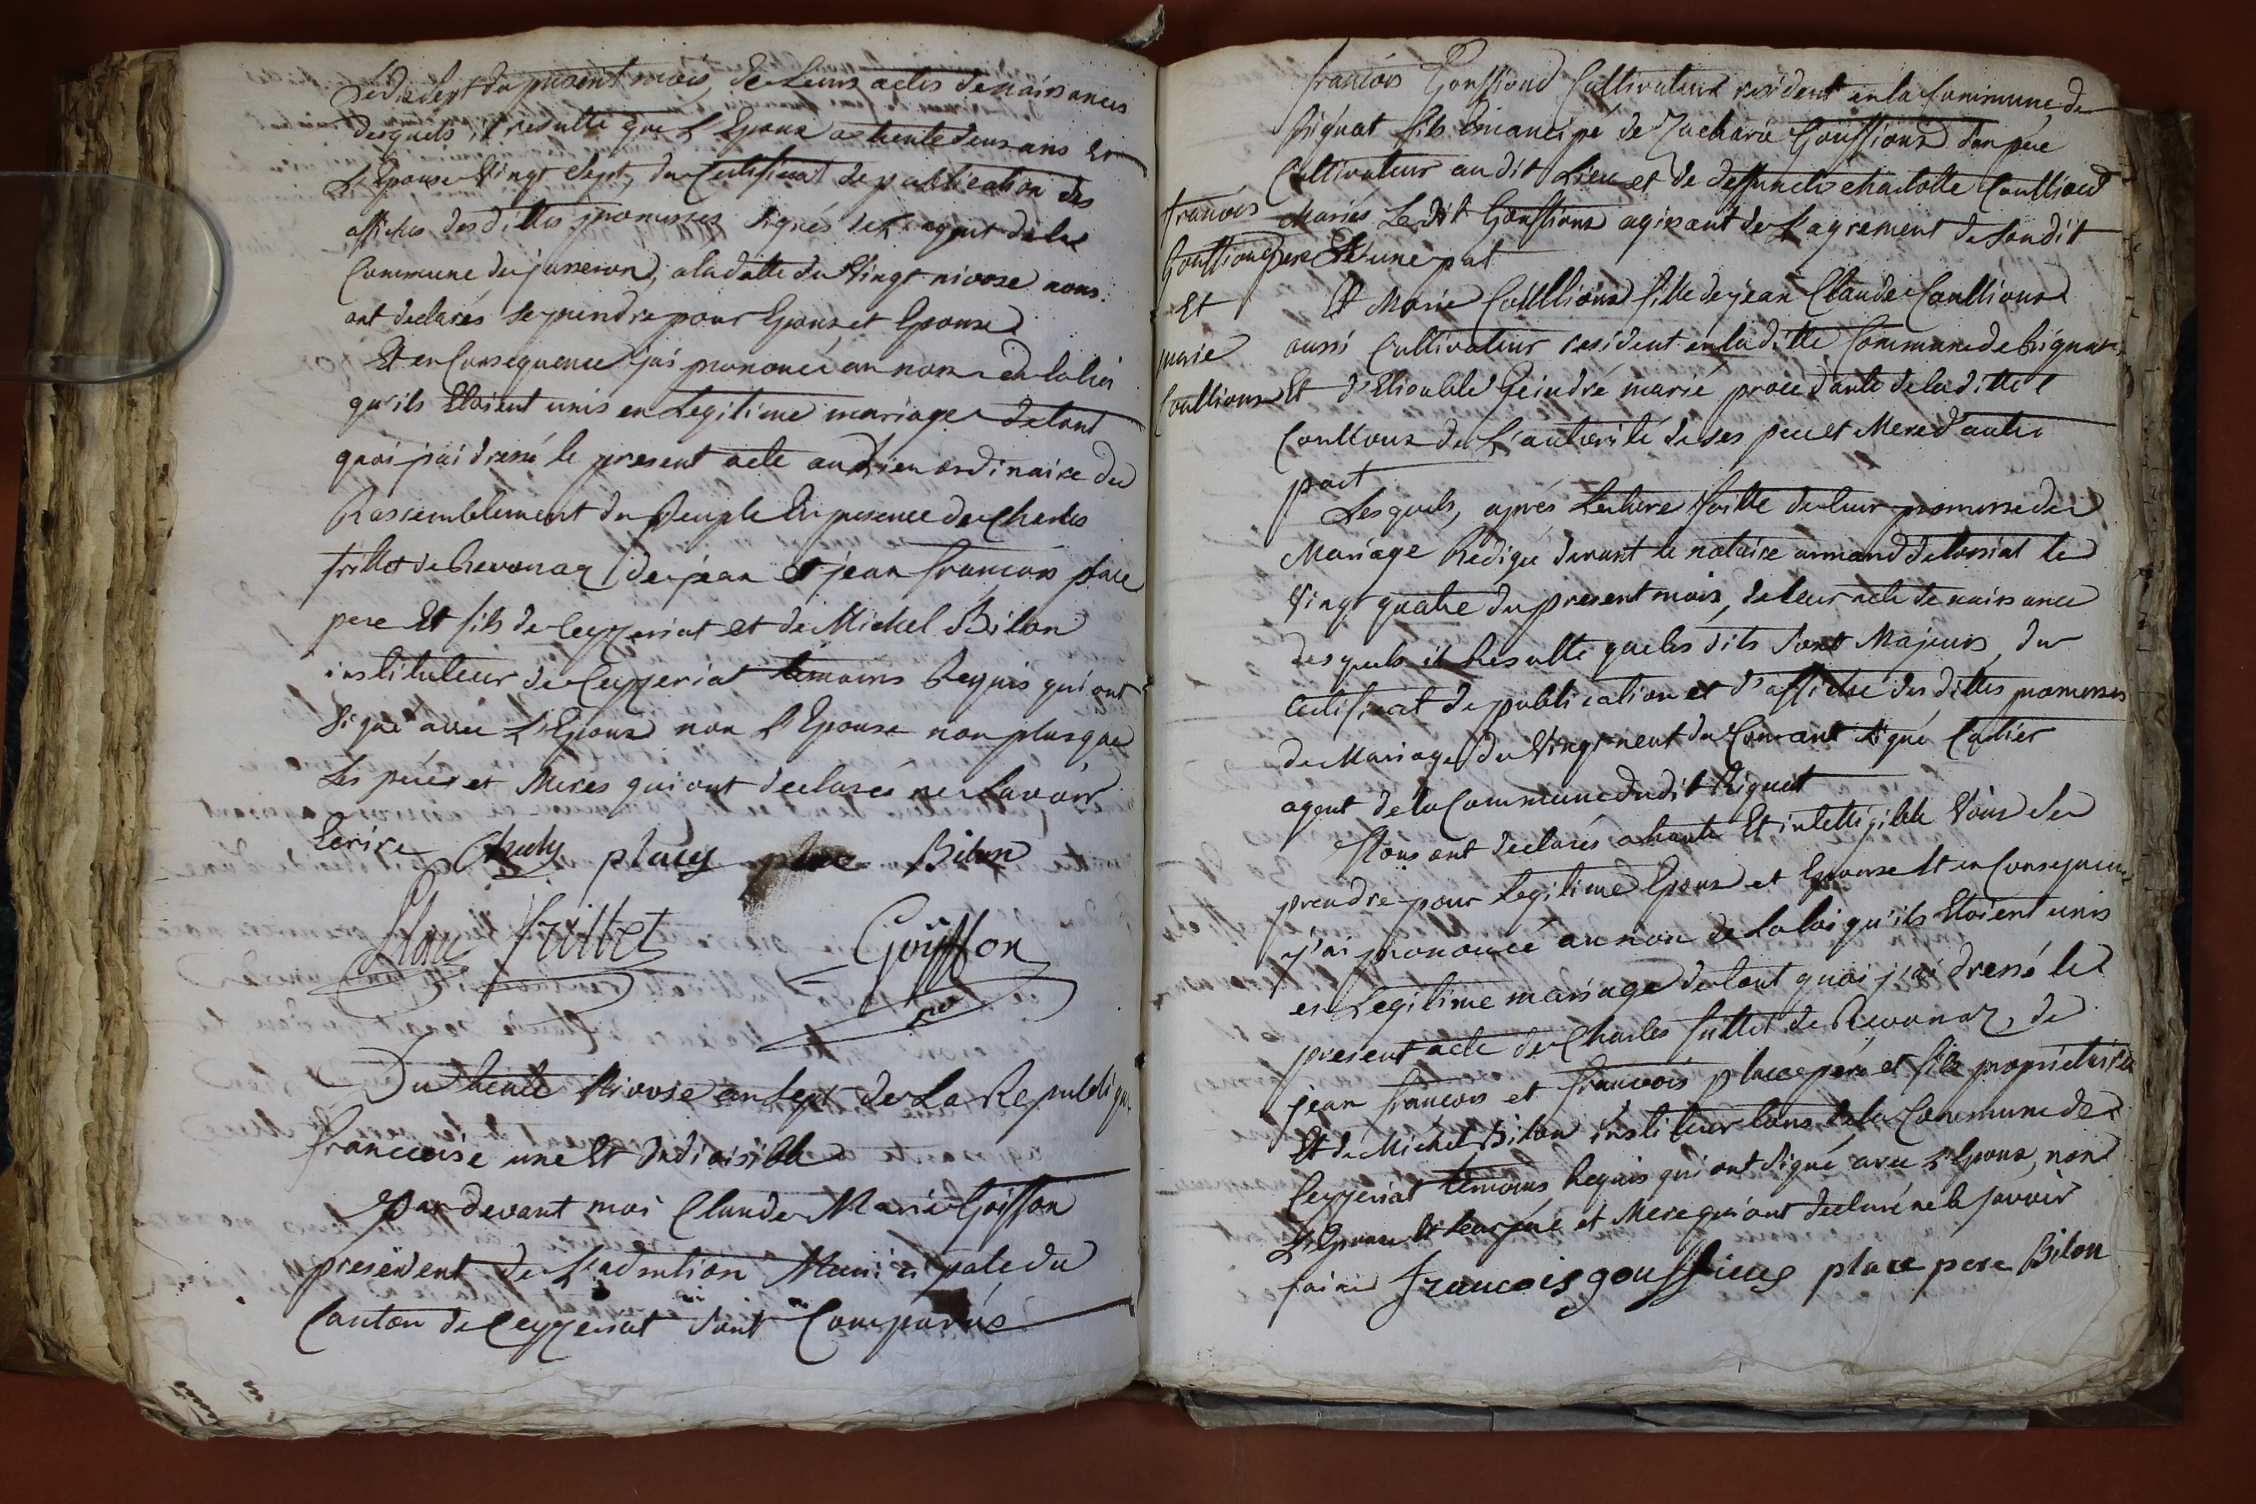 du présent mois, de Leurs actes de naissances
desquels, il resulte que L'Epoux a trente deux ans Et
L'Epouse Vingt Sept, du Certificat de publication des
affiches des dittes promesses signés de L'agent de la
Commune de jasseron, a la datte du Vingt nivose nous
ont declarés se prendre pour Epoux et Epouse
Et en Consequence j'ai prononcé au nom de la loi
qu'ils Etoient unis en Legitime mariage de tout
quoi j'ai dressé le present acte au Lieu ordinaire du
Rassemblement du Peuple En presence de Charles
frillet de Revonaz de jean et jean francois place
pere Et fils de Ceyzeriat et de Michel Bilon
instituteur de Ceyzeriat témoins Requis qui ont
signé avec L'Epoux non L'Epouse non plus que
Les péres et Meres qui ont declarés ne Savoir
Ecrire placy place Bilon
frillet Goiffon
Du trente Nivose an Sept de La Republique
francaise une Et Indivisible
Par devant moi Claude Marie Goiffon
president de L'admtion Municipale du
Canton de Ceyzeriat Sont Comparus
francois Gouffioux Cultivateur resident en la Commune de
Rignat fils Emancipé de Zacharie Gouffioux Son pére
Cultivateur au dit Lieu et de deffuncte charlotte Coullioud
Mariés Le dit Gouffioux agissant de L'agrement de Son dit
pere De une part
Et Marie Coullioux fille de jean Claude Coullioux
aussi Cultivateur resident en la ditte Commune de Rignat
Et d' Geindré marié procedante de la ditte
Coullioux de L'autorité de ses pere et Mere d'autre
part
francois
Gouffioux
Et
marie
Coullioux
Lesquels, aprés Lecture faitte de leur promesse de
Mariage Redigée devant le notaire armand de le
Vingt quatre du present mois, de leur acte de naissance
desquels il Resulte que les dits Sont Majeurs, du
Certificat de publication et d'affiche des dittes promesses
de Mariage du Vingt neuf du Courant signé
agent de la Commune dudit Rignat
Nous ont declarés a haute Et intelligible Voix Se
prendre pour Legitime Epoux et Epouse Et en Consequence
j'ai prononcé au nom de La loi qu'ils Etoient unis
en Legitime mariage de tout quoi j'ai dressé le
present acte de Charles frillet de Revonaz, de
jean francois et francois place pére et fils proprietaires
Et de Michel Bilon instituteur tous de la Commune de
Ceyzeriat témoins Requis qui ont signé avec L'Epoux, non
L'Epouse Et leur pere et Mere qui ont declaré ne le savoir
faire francois gouffioux place pere Bilon